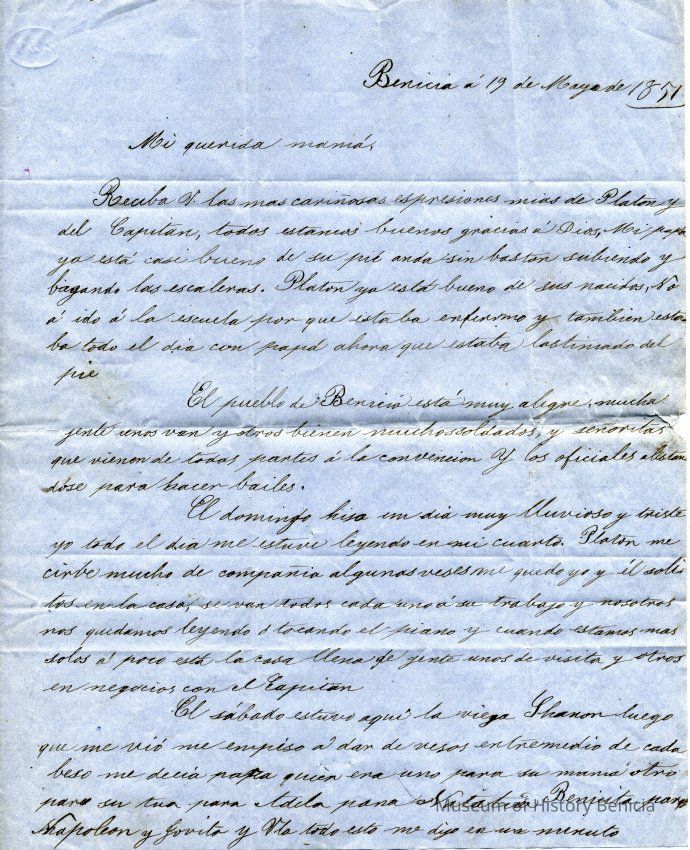 Benicia á 19 de Mayo de 1851
Mi querida mamá,
Reciba V. las mas cariñosas espresiones mias de Platon y
del Capitan, todos estamos buenos gracias á Dios, Mi papa
ya está casi bueno de su pié anda sin baston subiendo y
bagando las escaleras. Platon ya está bueno de sus nacidos, No
á ido á la escuela por que estaba enfermo y tambien esta
ba todo el dia con papá ahora que estaba lastimado del
pie
El pueblo de Benicia está muy alegre, mucha
jente unos van y otros bienen muchos soldados, y señoritas
que vienen de todas partes á la convencion Y los oficiales alistan
dose para hacer bailes.
El domingo hiso un dia muy lluvioso y triste
yo todo el dia me estuve leyendo en mi cuarto. Platon me
cirbe mucho de compañia algunas veses me quedo yo y él soli
tos en la casa, se van todos cada uno á su trabajo y nosotros
nos quedamos leyendo ó tocando el piano y cuando estamos mas
solos á poco está la casa llena de jente unos de visita y otros
en negocios con el Kapitan
El sábado estuvo aqui la vieja Shanon luego
que me vió me empiso á dar de vesos entremedio de cada
beso me decia para quien era uno para su mamá otro
para su tua para Adela para Natalia Benicita para
Napoleon y Jovita y Ula todo esto me dijo en un menuto
Museum of History Benicia